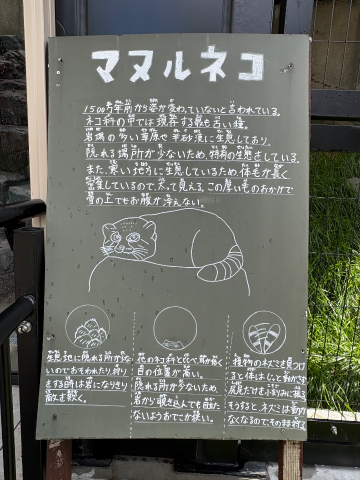 マヌルネコ
1500万年前から姿が変わっていないと言われている。
ネコ科の中では現存する最も古い種。
岩場の多い草原や半砂漠に生息しており、
隠れる場所が少ないため、特有の生息さしている。
また、寒い地方に生息しているため、体毛が長く
密集しているので、太って見える。この厚い毛のおかげで
雪の上でもお腹が冷えない。
生息地に隠れる所が少な
いのでおそわれたり、狩り
をする時は岩になりきり
敵を欺く。
他のネコ科と比べ、耳が低く
目の位置が高い。
隠れる所が少ないため、
岩から覗き込んでも目立た
ないようおでこが狭い。
獲物のネズミを見つけ
ると体はじっと動かさず
尻尾だけを小刻みに振る
そうすると、ネズミは動か
なくなるので、その時狩る